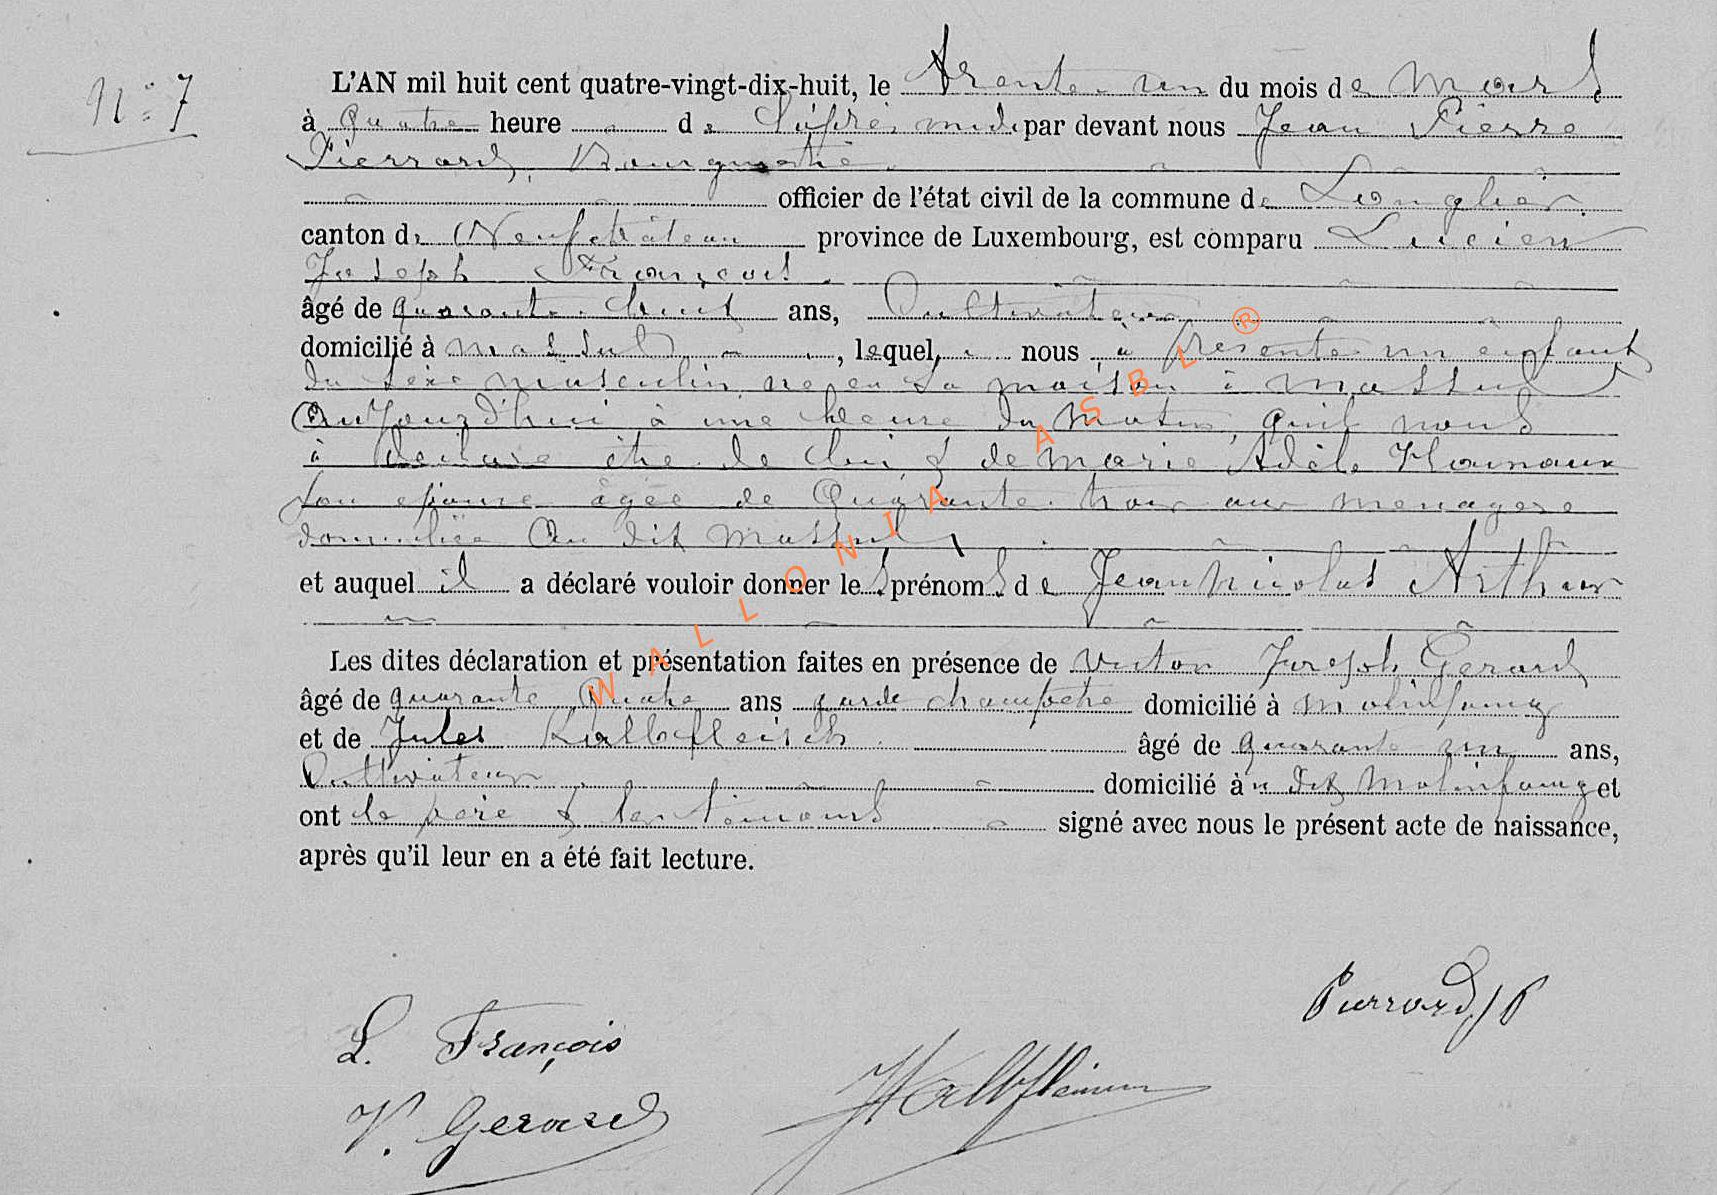 N° 7
L'AN mil huit cent quatre-vingt-dix-huit, le trente-un du mois de Mars
à quatre heure de l'après midi par devant nous Jean Pierre
Pierrard, Bourgmestre
officier de l'état civil de la commune de Longlier
canton de Neufchâteau province de Luxembourg, est comparu Lucien
Joseph François
âgé de quarante-huit ans, Cultivateur
domicilié à Massul, lequel, nous a présenté un enfant
du sexe masculin né en sa maison à Massul
Aujourd'hui à une heure du Matin, qu'il nous
à déclaré être de lui & de Marie Adèle
son épouse âgée de Quarante-trois ans menagere
domiciliée Au dit Massul,
et auquel il a déclaré vouloir donner les prénoms de Jean Nicolas Arthur
Les dites déclaration et présentation faites en présence de Victor Joseph Gerard
âgé de quarante Quatre ans garde champetre domicilié à Molinfaing
et de Jules Kalbfleisch âgé de quarante un ans,
Cultivateur domicilié à u dit Molinfaing et
ont le père & les témoins signé avec nous le présent acte de naissance,
après qu'il leur en a été fait lecture.
WALLONIA ASBL ®
Pierrard JP
L. François
V. Gerard